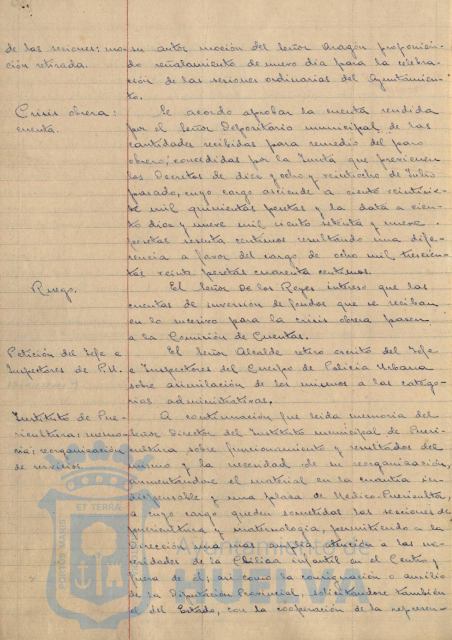 de las sesiones: mo-
ción retirada.
su autor moción del Señor Aragón proponien-
do señalamiento de nuevo día para la celebra-
ción de las sesiones ordinarias del Ayuntamien-
to.
Crisis obrera:
cuenta.
Se acordo aprobar la cuenta rendida
por el Señor Depositario municipal, de las
cantidades recibidas para remedio del paro
obrero, concedidas por la Junta que previenen
los Decretos de diez y ocho y veintiocho de Julio
pasado, cuyo cargo asciende a ciento veintisie-
te mil quinientas pesetas y la data a cien-
to diez y nueve mil ciento setenta y nueve
pesetas sesenta centimos resultando una dife-
rencia a favor del cargo de ocho mil trescien-
tas veinte pesetas cuarenta centimos.
Ruego.
El Señor De los Reyes intereso que las
cuentas de inversion de fondos que se reciban
en lo sucesivo para la crisis obrera pasen
a la Comisión de Cuentas.
Petición del Jefe e
Inspectores de P.U.
El Señor Alcalde retiro escrito del Jefe
e Inspectores del Cuerpo de Policia Urbana
sobre asimilación de los mismos a las catego-
rias administrativas.
Instituto de Pue-
ricultura: memo-
ria; reorganización
de servicios.
A continuación fue leida memoria del
Señor Director del Instituto municipal de Pueri-
cultura sobre funcionamiento y resultados del
mismo y la necesidad de su reorganización,
aumentandose el material en la cuantia in-
dispensable y una plaza de Medico-Puericultor,
a cuyo cargo queden sometidas las secciones de
puericultura y maternologia, permitiendo a la
Dirección una mas amplia atención a las ne-
cesidades de la Clinica infantil en el Centro y
fuera de el, asi como la consignación o auxilio
de la Diputación Provincial, solicitandose tambien
el del Estado, con la cooperación de la represen-
ET TERRÆ
PORTUS MARIS
Ayuntamiento de
HUELVA